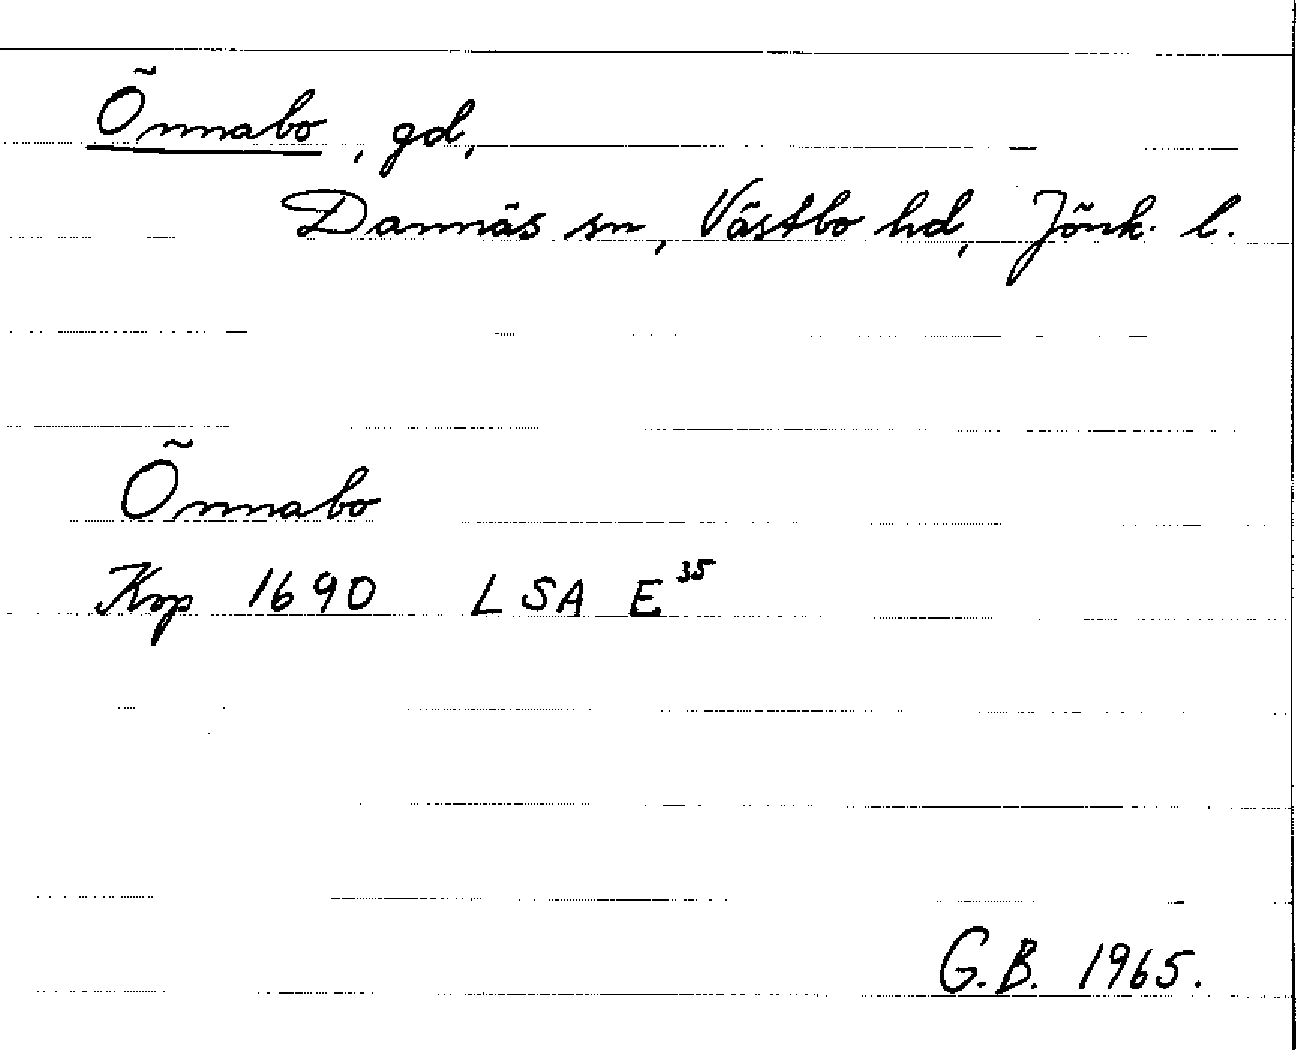 Önnabo, gd,
Dannäs sn, Västbo hd, Jönk. l.
Önnabo
Kop 1690 LSA E³⁵
G.B. 1965.